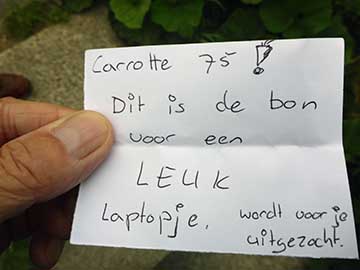 Carrotte 75 !
Dit is de bon
voor een
LEUK
Laptopje, wordt voor je
uitgezocht.